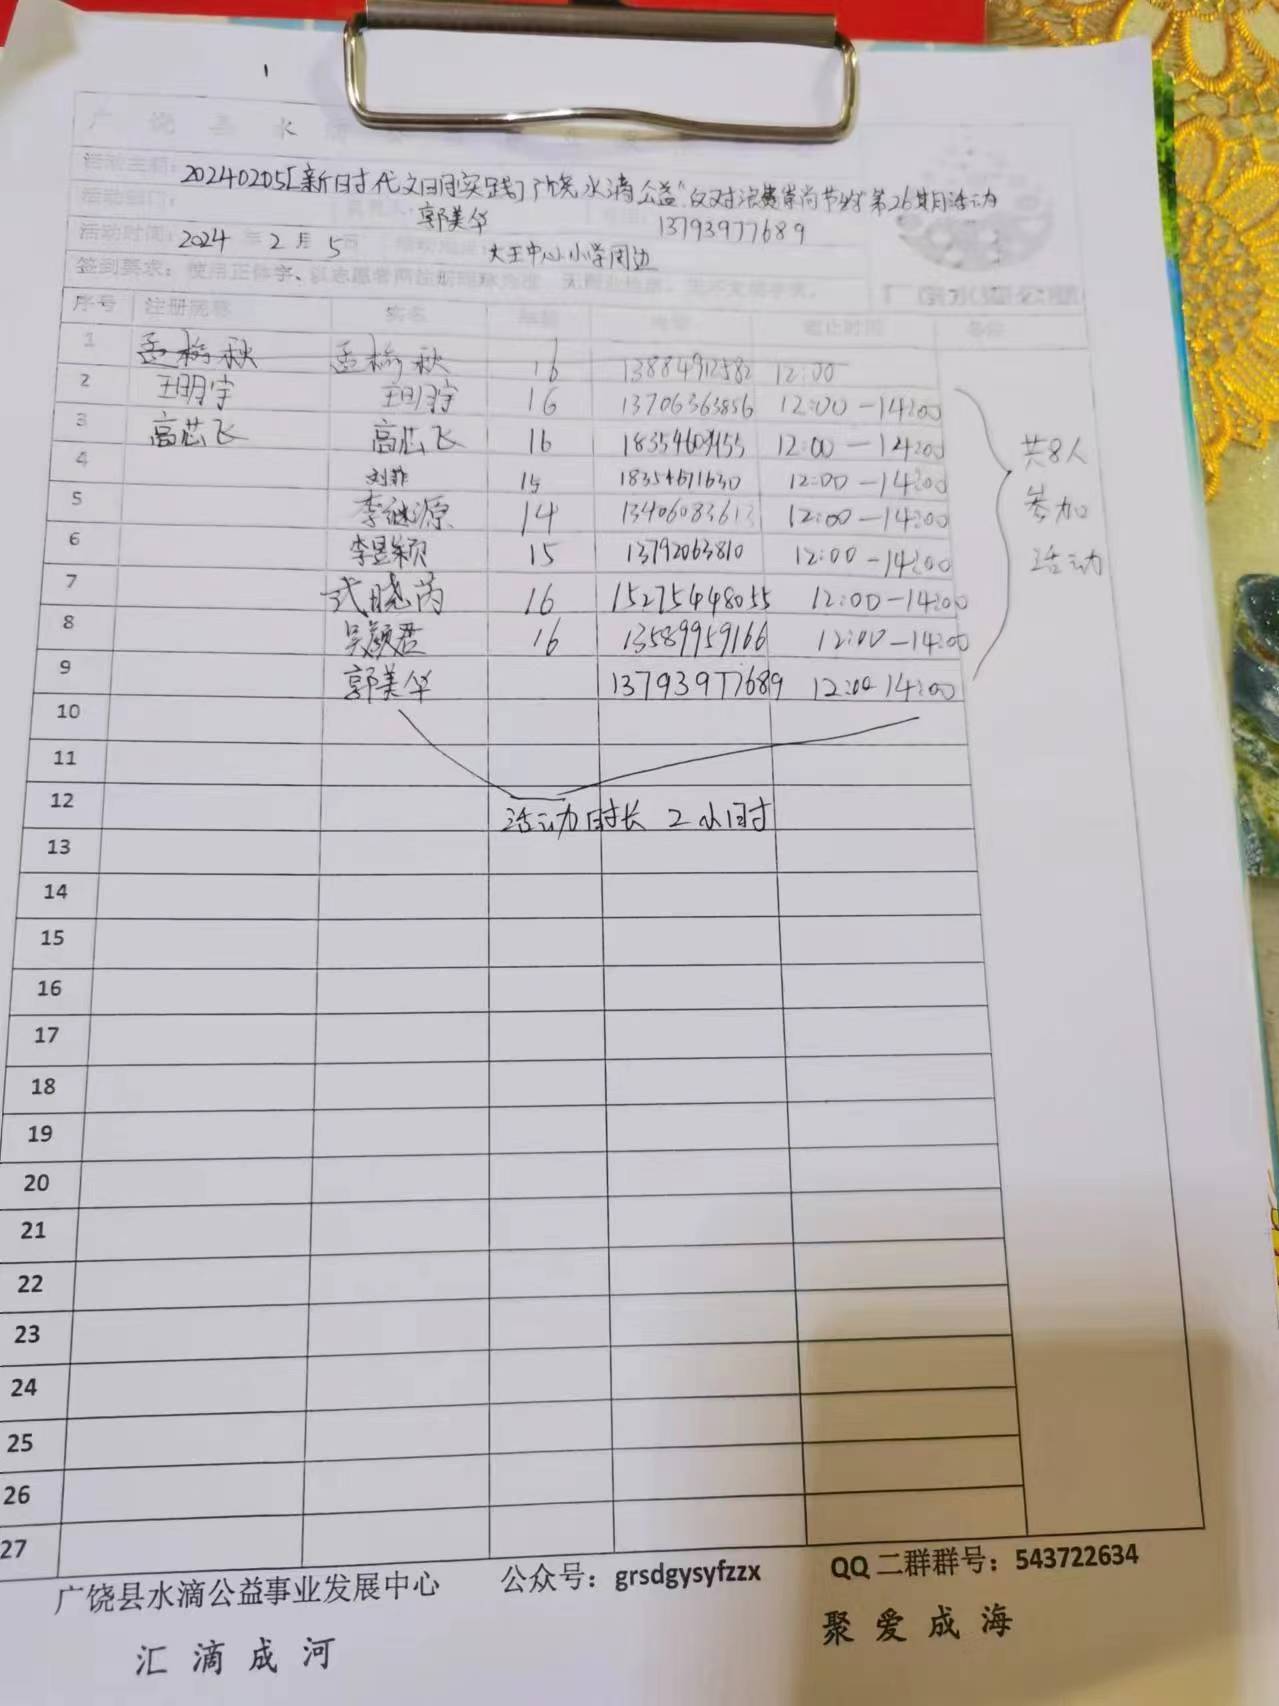 广饶县水滴
活动主题: 20240205[新时代文明实践]广饶水滴公益"反对浪费崇尚节约"第26期活动
活动部门: 郭美华 13793977689
活动时间: 2024年2月5日 大王中心小学周边
签到要求:使用正体字、
序号 注册昵称 实名 电话 截止时间 备注
1 孟榆秋 孟榆秋 16 13884912582 12:00
2 王明宇 王明宇 16 13706363856 12:00-14:00
3 高芯飞 高芯飞 16 12:00-14:00
4 刘菲 15 18354671630 12:00-14:00
5 李继源 14 13406083613 12:00-14:00
6 李昱颖 15 13792063810 12:00-14:00
7 式晓芮 16 15275448055 12:00-14:00
8 吴颜君 16 13589959166 12:00-14:00
9 郭美华 13793977689 12:00-14:00
共8人
参加
活动
10
11
12
活动时长 2小时
13
14
15
16
17
18
19
20
21
22
23
24
25
26
27
广饶县水滴公益事业发展中心 公众号:grsdgysyfzzx QQ二群群号:543722634
汇滴成河 聚爱成海